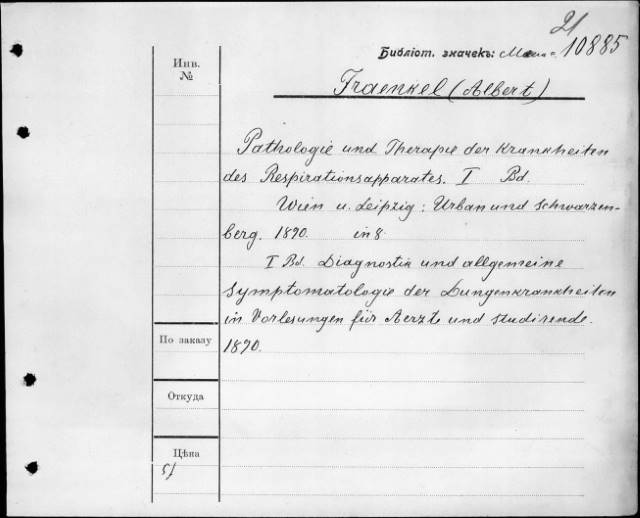 21
Библіот. значекъ: 10885
Инв.
№
Fraenkel (Albert)
Pathologie und Therapie der Krankheiten
des Respirationsapparates. I Bd.
Wien u. Leipzig: Urban und Schwarzen-
berg. 1890. in 8.
I Bd. Diagnostik und allgemeine
Symptomatologie der Lungenkrankheiten
in Vorlesungen für Aerzte und Studirende.
1890.
По заказу
Откуда
Цѣна